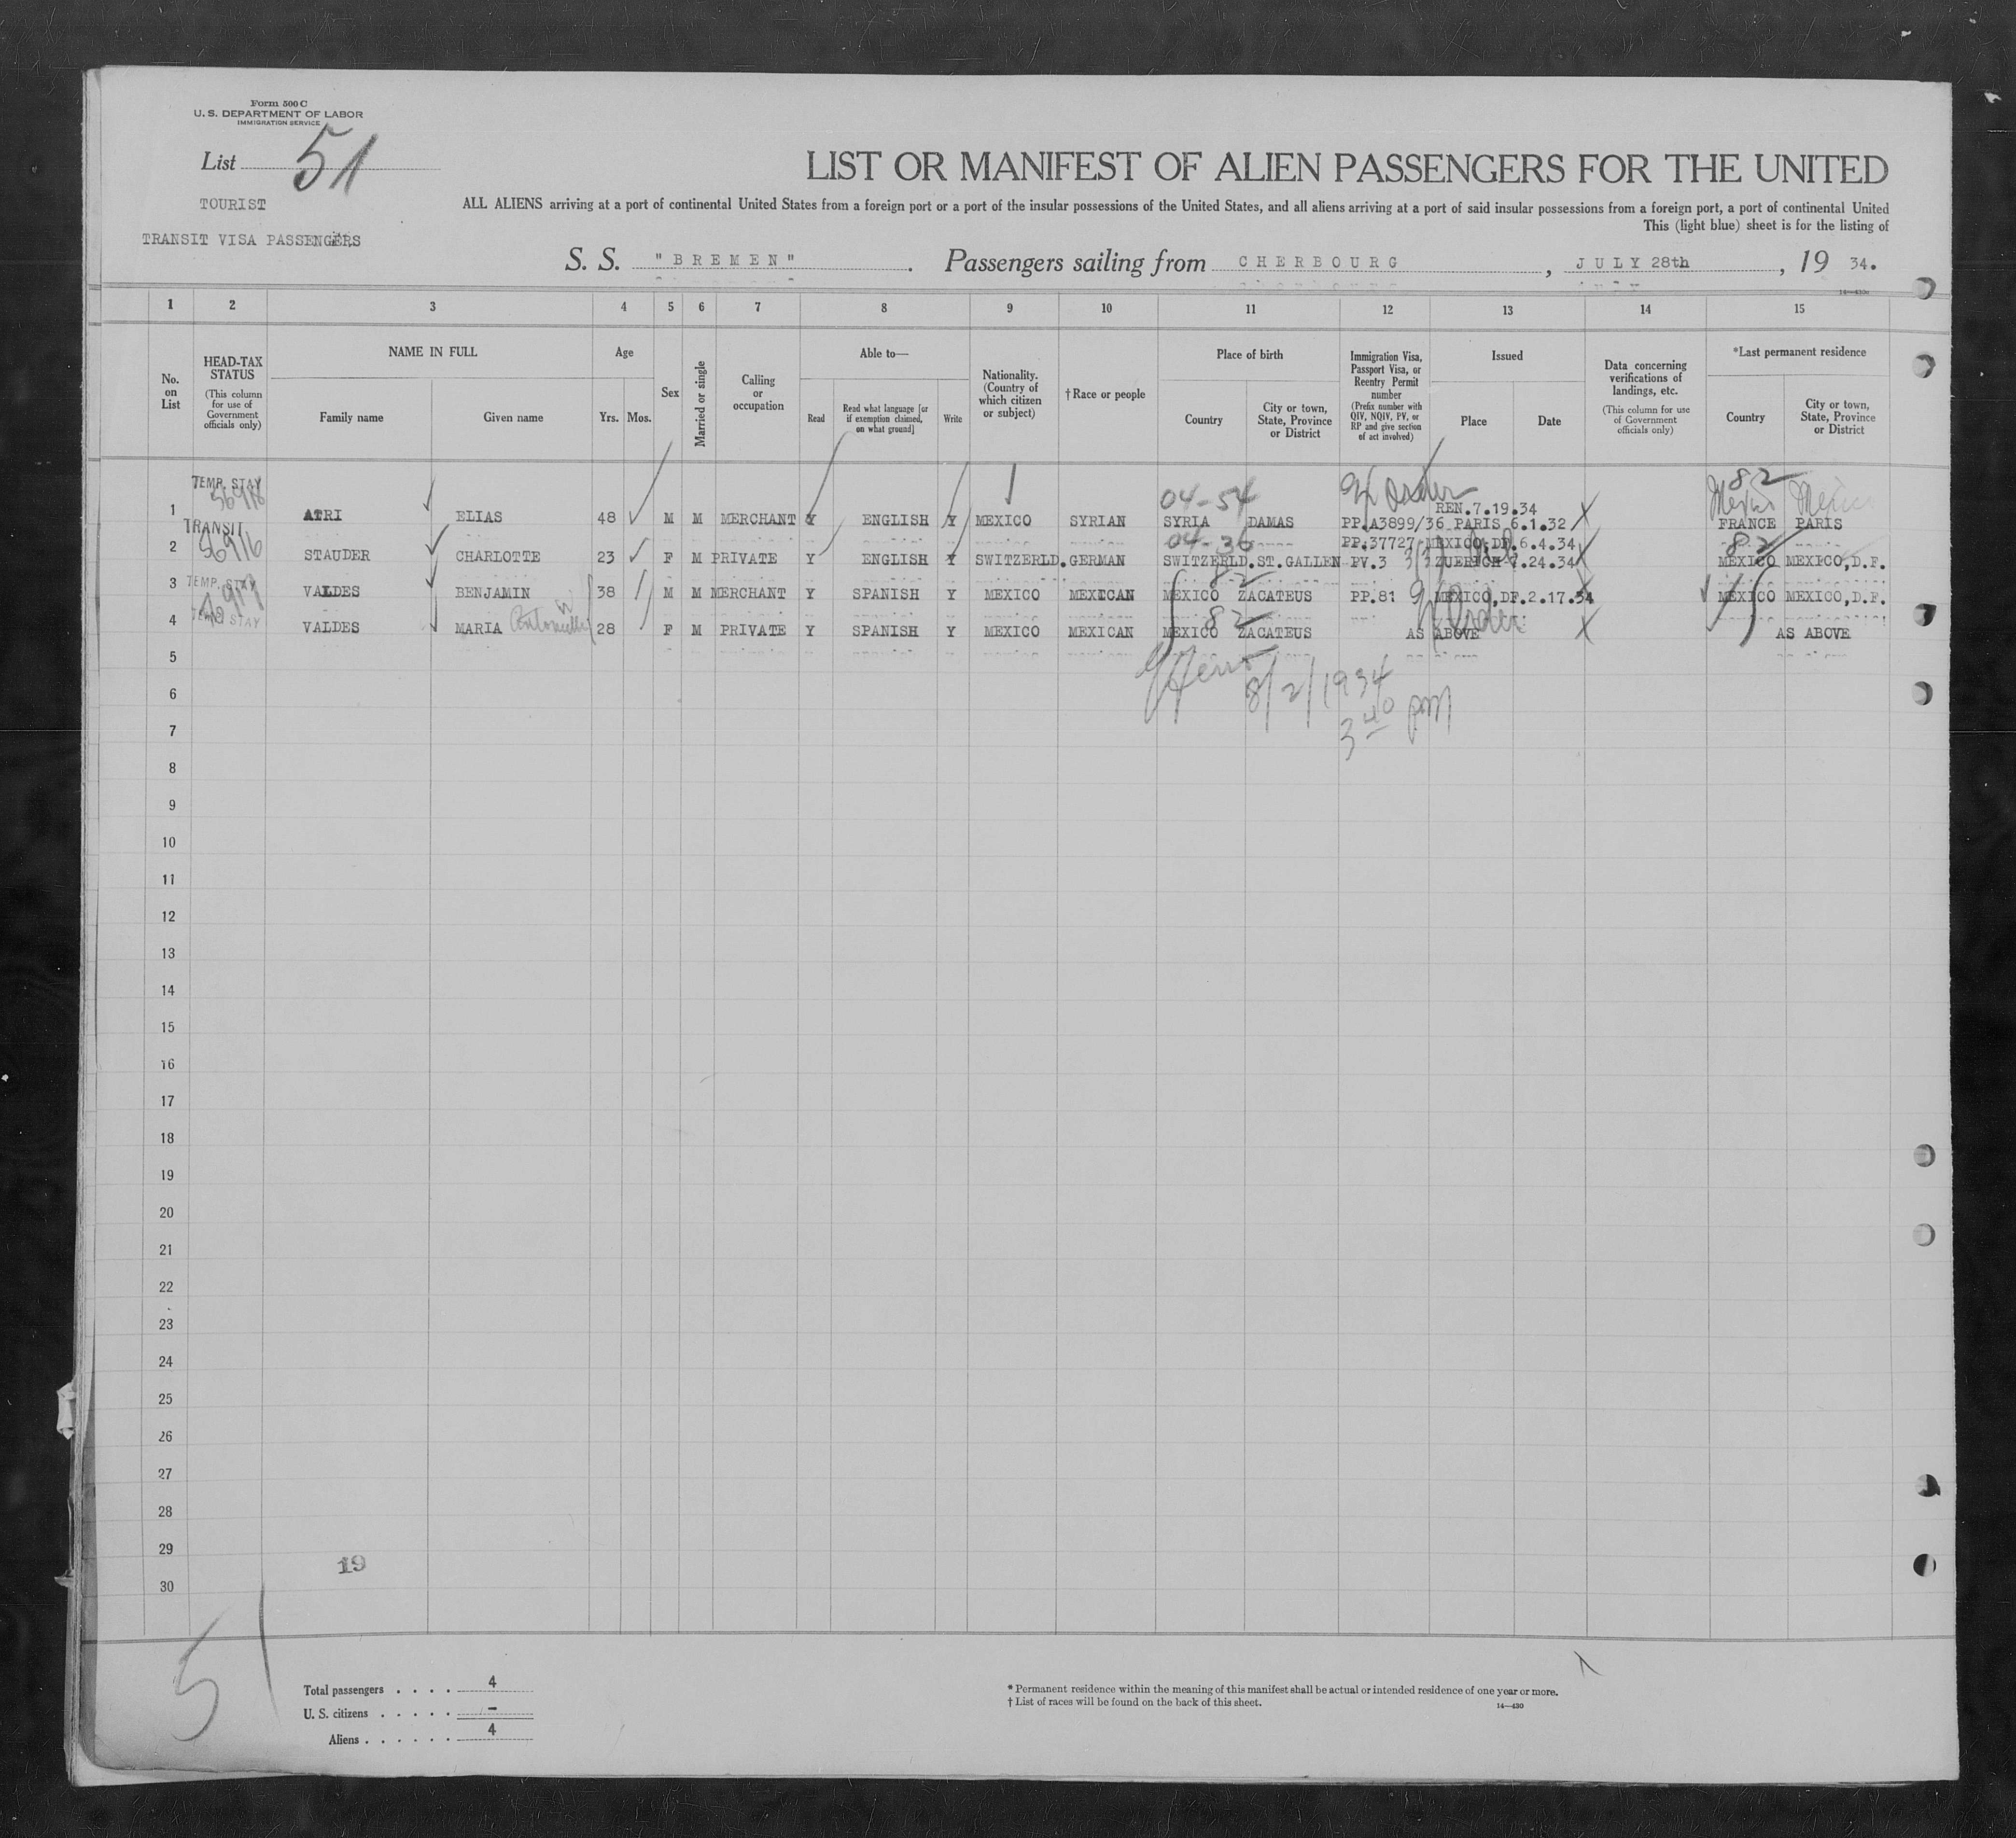 Form 500 C
U. S. DEPARTMENT OF LABOR
IMMIGRATION SERVICE
List 51
LIST OR MANIFEST OF ALIEN PASSENGERS FOR THE UNITED
TOURIST
ALL ALIENS arriving at a port of continental United States from a foreign port or a port of the insular possessions of the United States, and all aliens arriving at a port of said insular possessions from a foreign port, a port of continental United
This (light blue) sheet is for the listing of
TRANSIT VISA PASSENGERS
S. S. "BREMEN". Passengers sailing from CHERBOURG, JULY 28th, 19 34.
14—430
1 2 3 4 5 6 7 8 9 10 11 12 13 14 15
No. on List
HEAD-TAX STATUS (This column for use of Government officials only)
NAME IN FULL
Family name
Given name
Age
Yrs. Mos.
Sex
Married or single
Calling or occupation
Able to—
Read
Read what language [or if exemption claimed, on what ground]
Write
Nationality. (Country of which citizen or subject)
†Race or people
Place of birth
Country
City or town, State, Province or District
Immigration Visa, Passport Visa, or Reentry Permit number (Prefix number with QIV, NQIV, PV, or RP and give section of act involved)
Issued
Place
Date
Data concerning verifications of landings, etc. (This column for use of Government officials only)
*Last permanent residence
Country
City or town, State, Province or District
TEMP. STAY 04-54 82
REN.7.19.34
1 ATRI ELIAS 48 M M MERCHANT Y ENGLISH Y MEXICO SYRIAN SYRIA DAMAS PP.A3899/36 PARIS 6.1.32 FRANCE PARIS
TRANSIT 56916 04-36 PP.37727 MEXICO,DF.6.4.34 82
2 STAUDER CHARLOTTE 23 F M PRIVATE Y ENGLISH Y SWITZERLD. GERMAN SWITZERLD. ST.GALLEN PV.3 ZUERICH 7.24.34 MEXICO MEXICO,D.F.
TEMP. STAY 82
3 VALDES BENJAMIN 38 M M MERCHANT Y SPANISH Y MEXICO MEXICAN MEXICO ZACATEUS PP.81 MEXICO,DF.2.17.34 MEXICO MEXICO,D.F.
TEMP. STAY 82
4 VALDES MARIA 28 F M PRIVATE Y SPANISH Y MEXICO MEXICAN MEXICO ZACATEUS AS ABOVE AS ABOVE
5
8/2/1934
6
3 40 pm
7
8
9
10
11
12
13
14
15
16
17
18
19
20
21
22
23
24
25
26
27
28
29
19
30
51
Total passengers . . . . 4
U. S. citizens . . . . . -
Aliens . . . . . . 4
* Permanent residence within the meaning of this manifest shall be actual or intended residence of one year or more.
† List of races will be found on the back of this sheet.
14—430